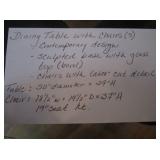 Dining Table with chairs (5)
- Contemporary design
- sculpted base with glass
top (bevel)
- chairs with laser-cut detail
Table: 50" diameter x 29" H
Chair: 18½" w x 19½" D x 37" H
19" seat ht.